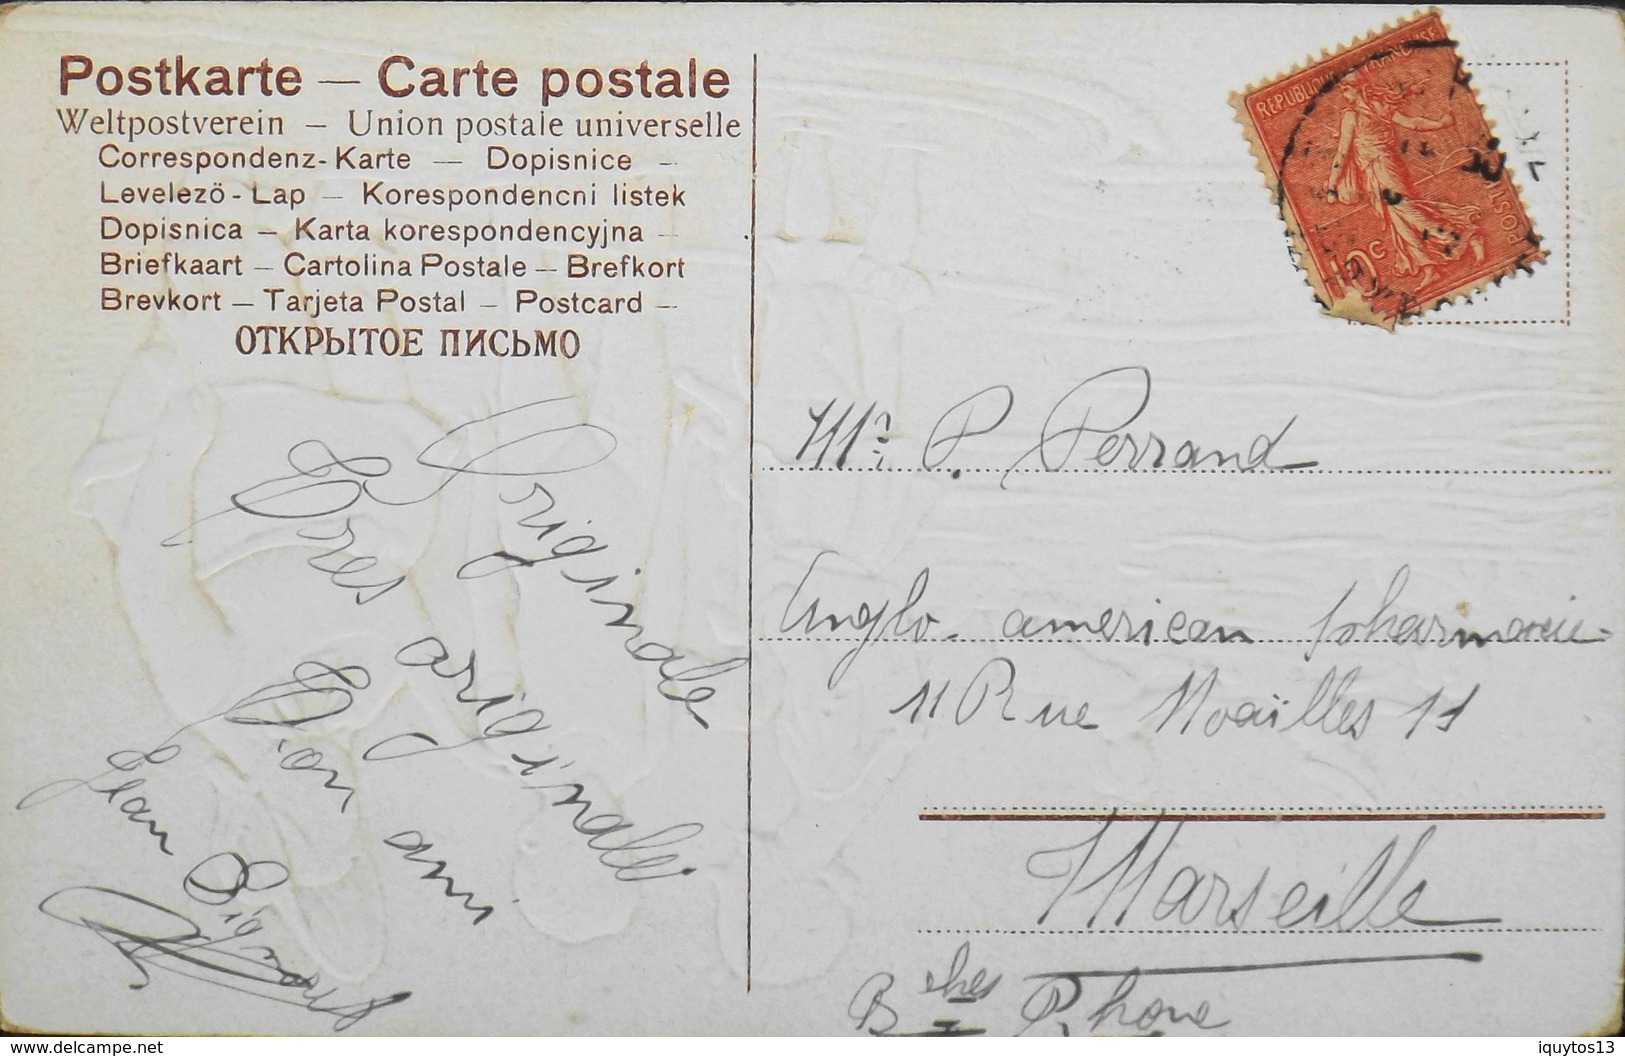 Postkarte — Carte postale
Weltpostverein — Union postale universelle
Correspondenz-Karte — Dopisnice —
Levelezö-Lap — Korespondencni listek
Dopisnica — Karta korespondencyjna —
Briefkaart — Cartolina Postale — Brefkort
Brevkort — Tarjeta Postal — Postcard —
ОТКРЫТОЕ ПИСЬМО
Originale
Tres originale
Mon ami
Jean
REPUBLIQUE FRANÇAISE
POSTES
10c
Mr P. Perrand
Anglo-american pharmacie
11 Rue Noailles 11
Marseille
Bches R. hone
delcampe.net
iquytos13